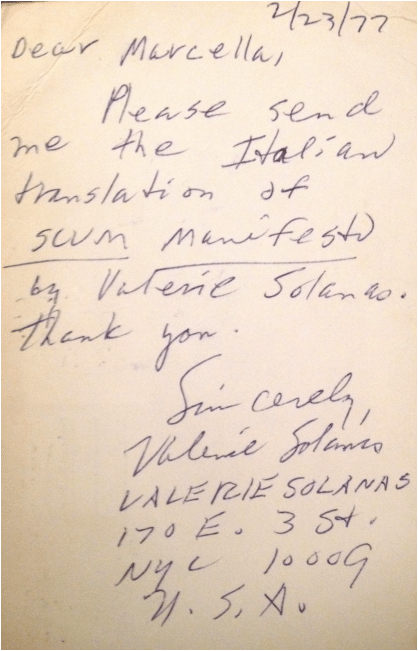 2/23/77
Dear Marcella,
Please send
me the Italian
translation of
SCUM Manifesto
by Valerie Solanas.
Thank you.
Sincerely,
Valerie Solanas
VALERIE SOLANAS
170 E. 3 St.
NYC 10009
U.S.A.